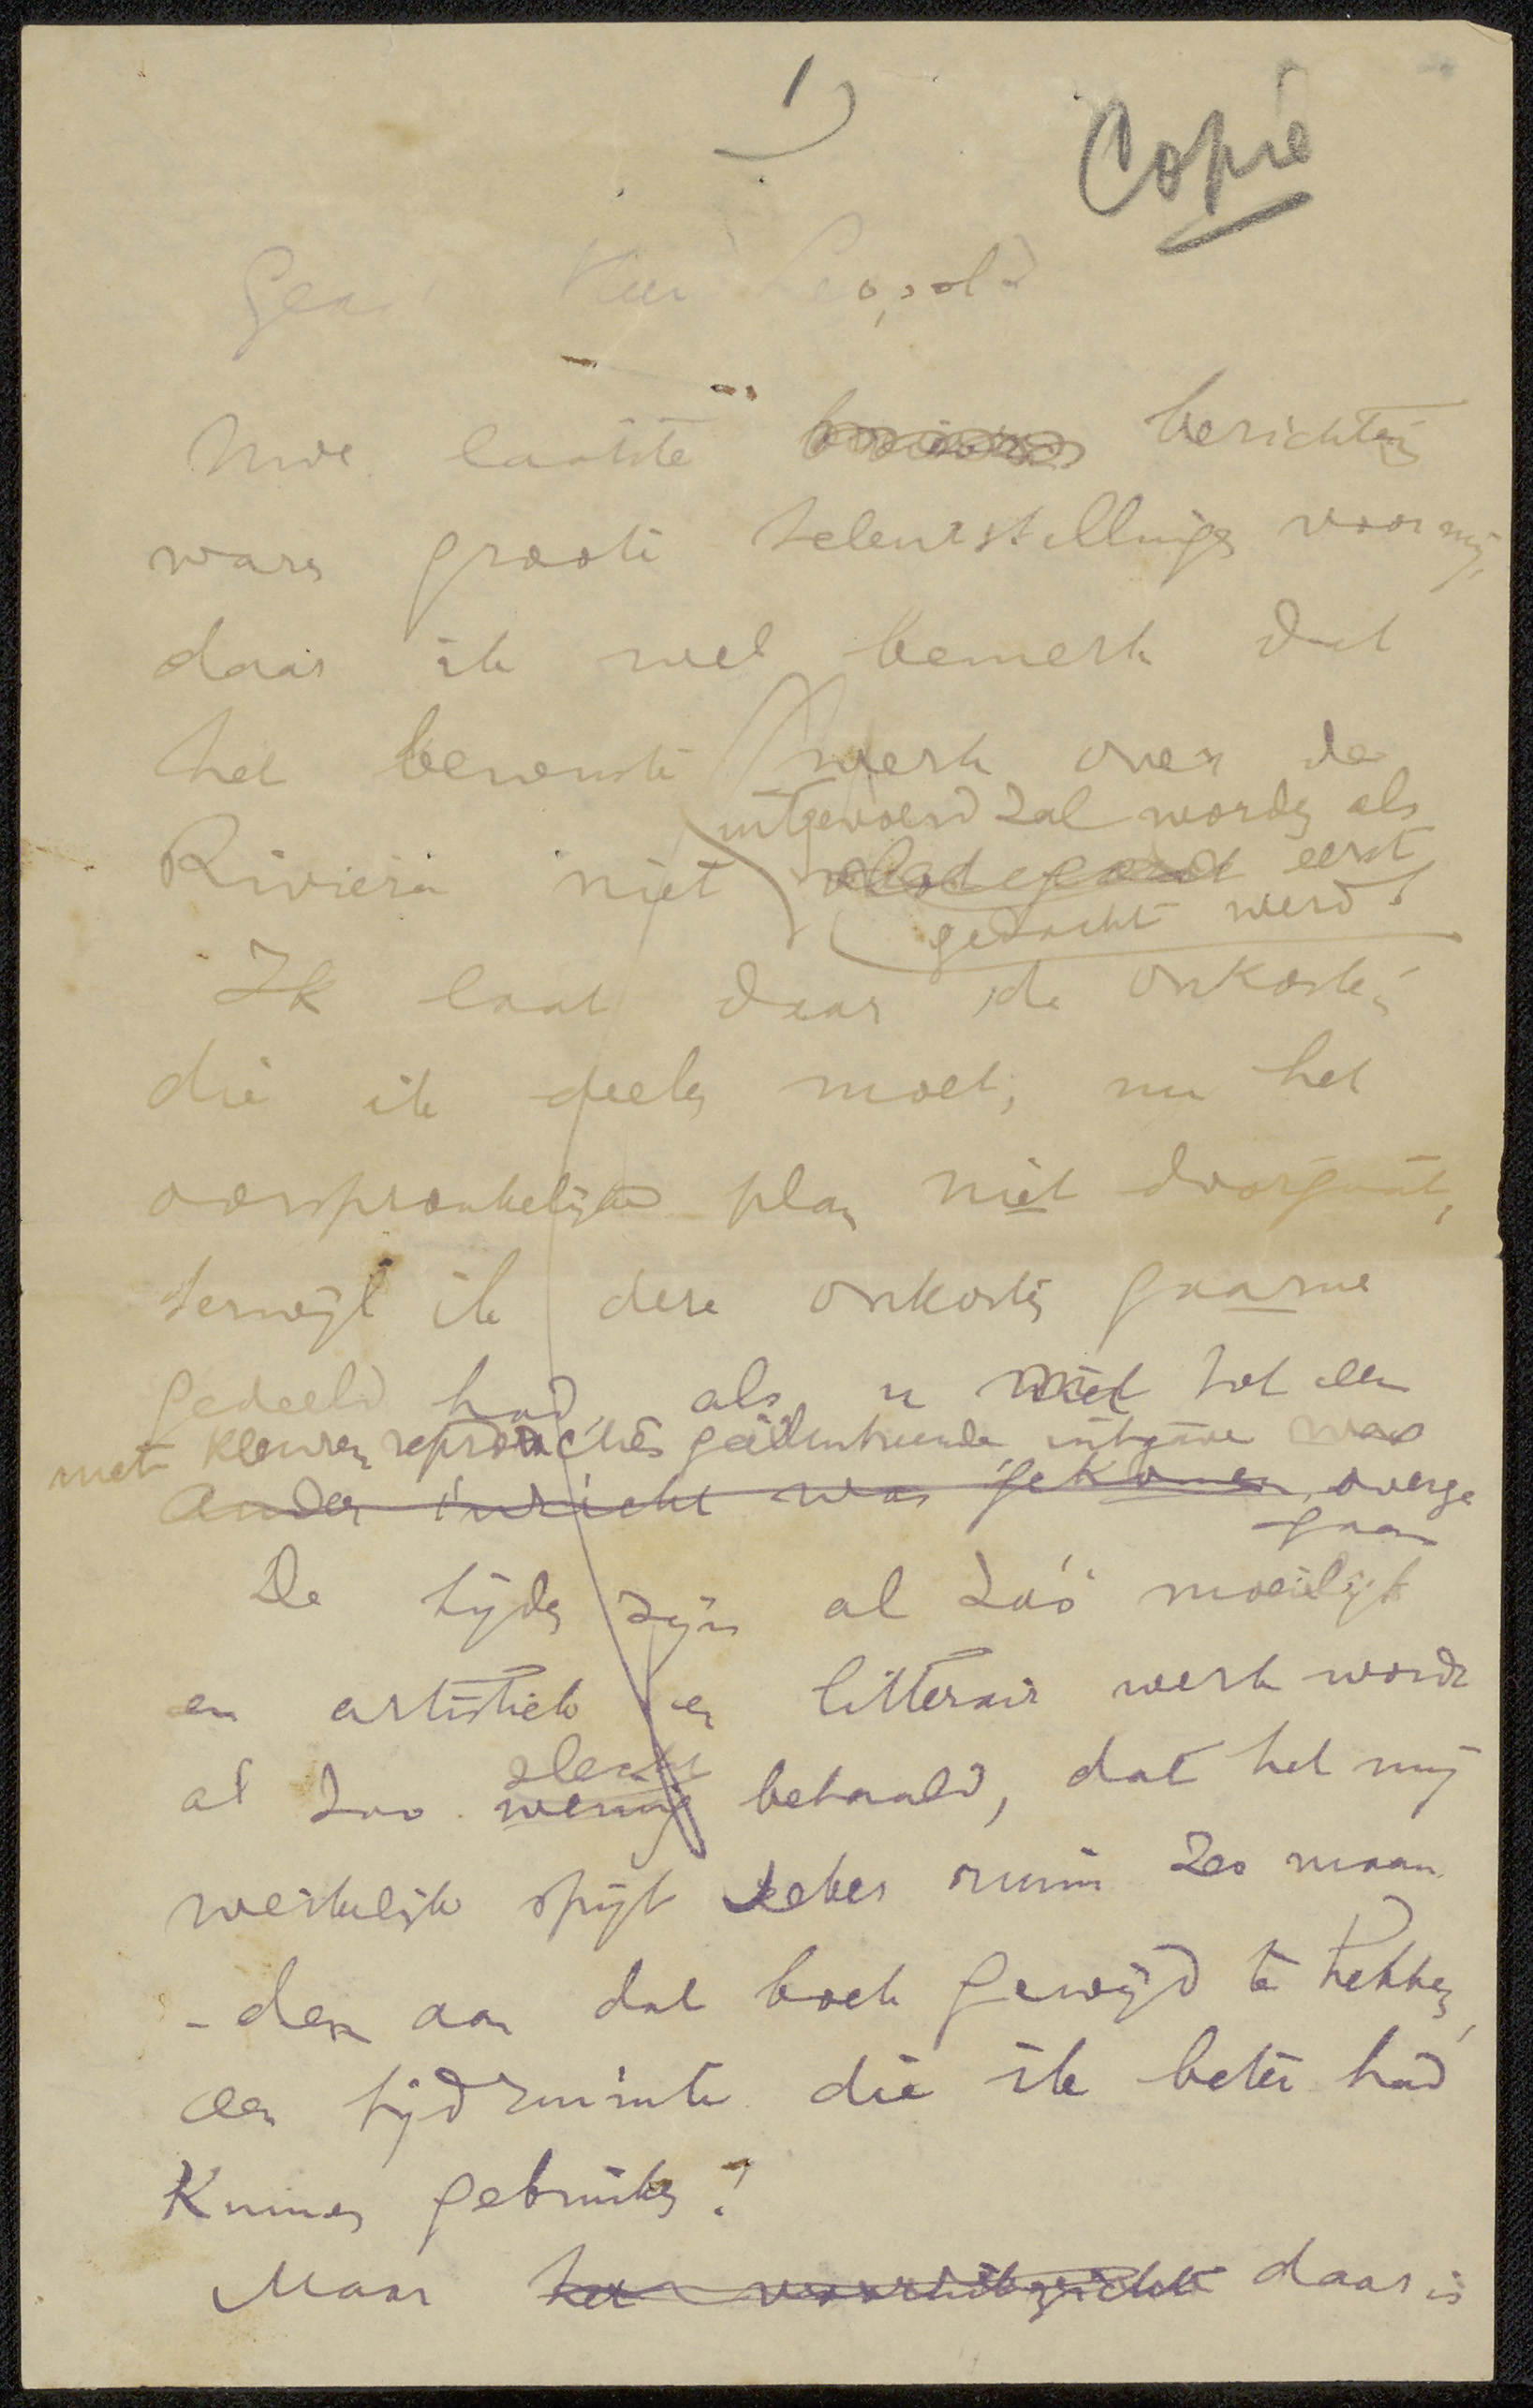 1)
Copie
Geac. Heer Leopold
Uwe laatste berichten
waren groote teleurstellingen voor mij,
daar ik wel bemerk dat
het bewuste werk over de
Riviera niet uitgevoerd zal worden als
eerst
gedacht werd!
Ik laat daar de onkosten
die ik deelen moet, nu het
oorspronkelijke plan niet doorgaat,
terwijl ik deze onkosten gaarne
gedeeld had, als u niet tot een
met kleuren reproducties geïllustreerde uitgave was
ander inzicht was gekomen overge
gaan
De tijden zijn al zóó moeilijk
en artistiek en litterair werk wordt
al zoo slecht
weinig betaald, dat het mij
werkelijk spijt zeker ruim zes maan
-den aan dat boek gewijd te hebben,
een tijdruimte die ik beter had
kunnen gebruiken!
Maar het vooruitzicht daar is